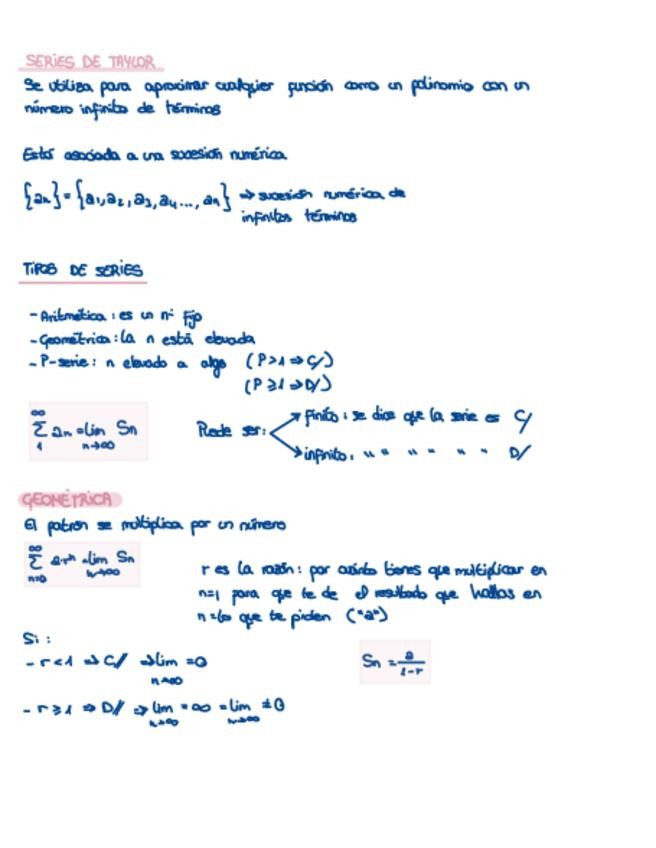 SERIES DE TAYLOR
Se utiliza para aproximar cualquier función como un polinomio con un
número infinito de términos
Está asociada a una sucesión numérica
{an} = {a1, a2, a3, a4..., an} ⇒ sucesión numérica de
infinitos términos
TIPOS DE SERIES
- Aritmética: es un nº fijo
- Geométrica: la n está elevada
- P-serie: n elevado a algo (P>1 ⇒ C//)
(P≥1 ⇒ D//)
∞
∑ an = lim Sn
1 n→∞
Puede ser:
finito: se dice que la serie es C//
infinito: " " " " " " D//
GEOMÉTRICA
El patrón se multiplica por un número
∞
∑ a·rⁿ = lim Sn
n=0 n→∞
r es la razón: por cuánto tienes que multiplicar en
n=1 para que te de el resultado que hallas en
n = lo que te piden ("a")
Si:
- r<1 ⇒ C// ⇒ lim = 0
n→∞
Sn = a/1-r
- r≥1 ⇒ D// ⇒ lim = ∞ = lim ≠ 0
n→∞ n→∞